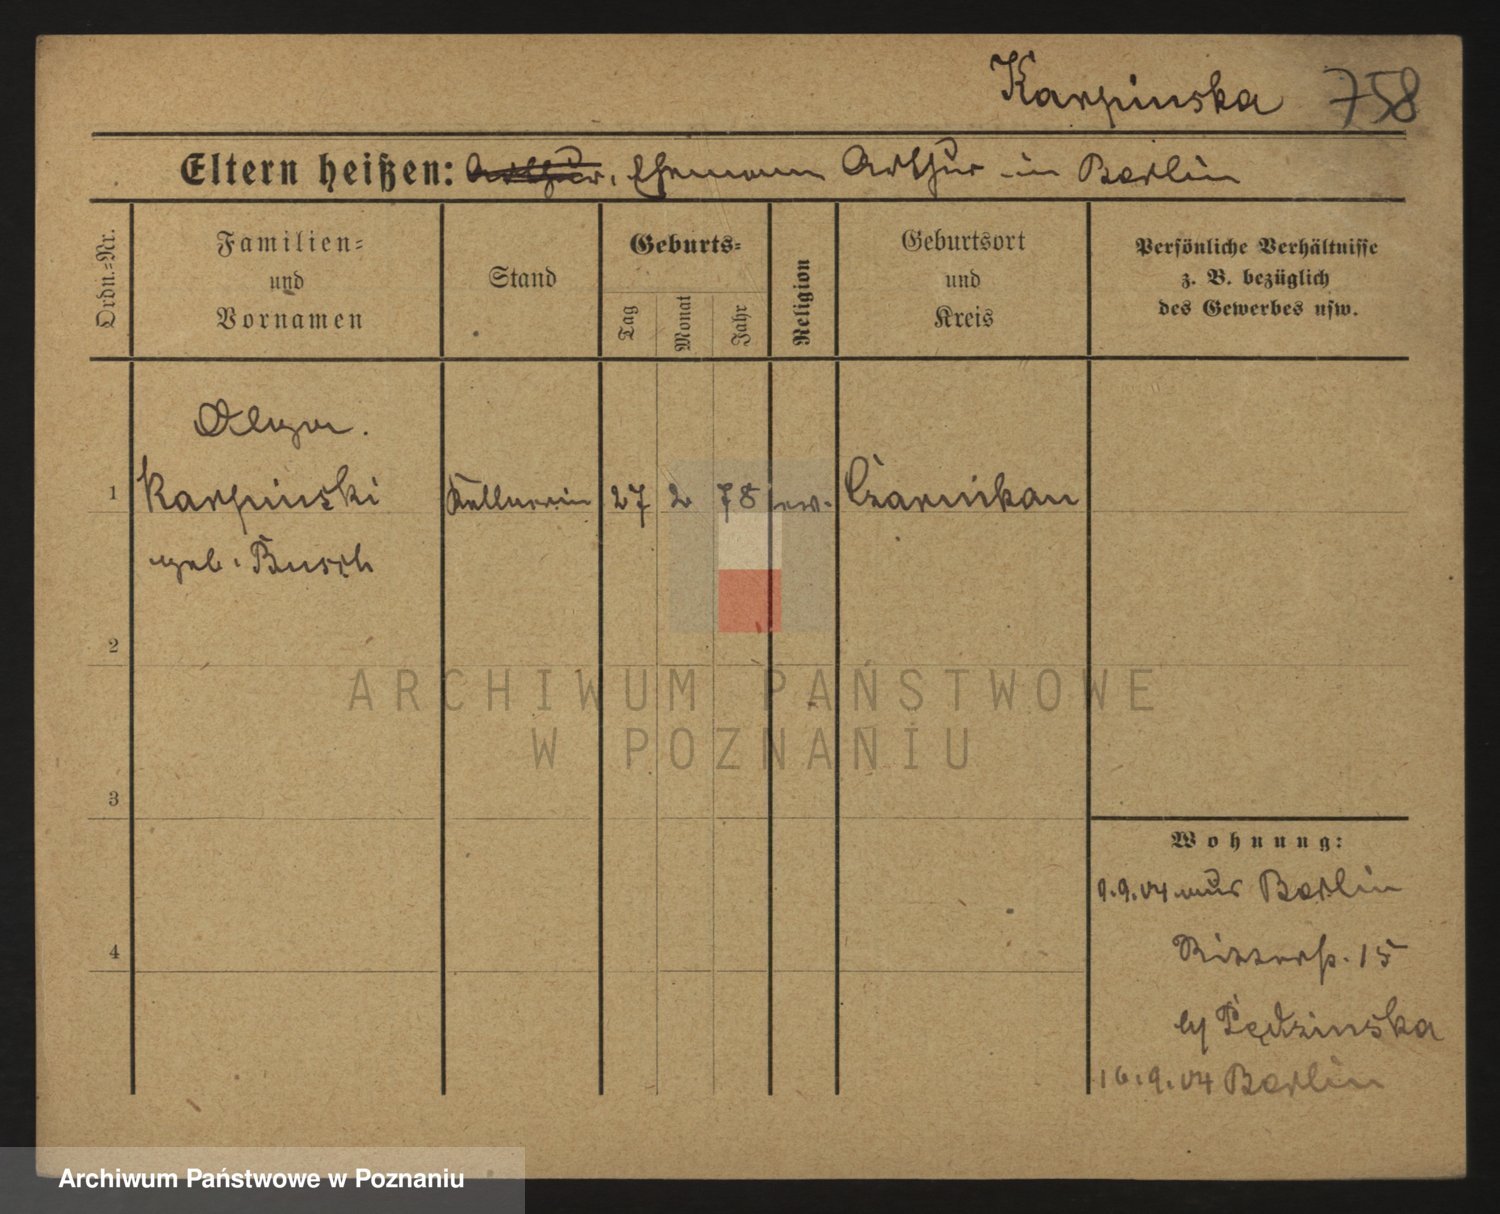 Karpinska 758
Eltern heißen: Arthur, Ehemann Arthur in Berlin
Ordn.-Nr.
Familien- und Vornamen
Stand
Geburts-
Tag
Monat
Jahr
Religion
Geburtsort und Kreis
Persönliche Verhältnisse
z. B. bezüglich
des Gewerbes usw.
Olga.
1 Karpinski Kellnerin 27 2 78 ev. Czarnikau
geb. Busch
2
ARCHIWUM PAŃSTWOWE
W POZNANIU
3
Wohnung:
9.9.04 aus Berlin
4
Ritterst. 15
by Pędzinska
16.9.04 Berlin
Archiwum Państwowe w Poznaniu